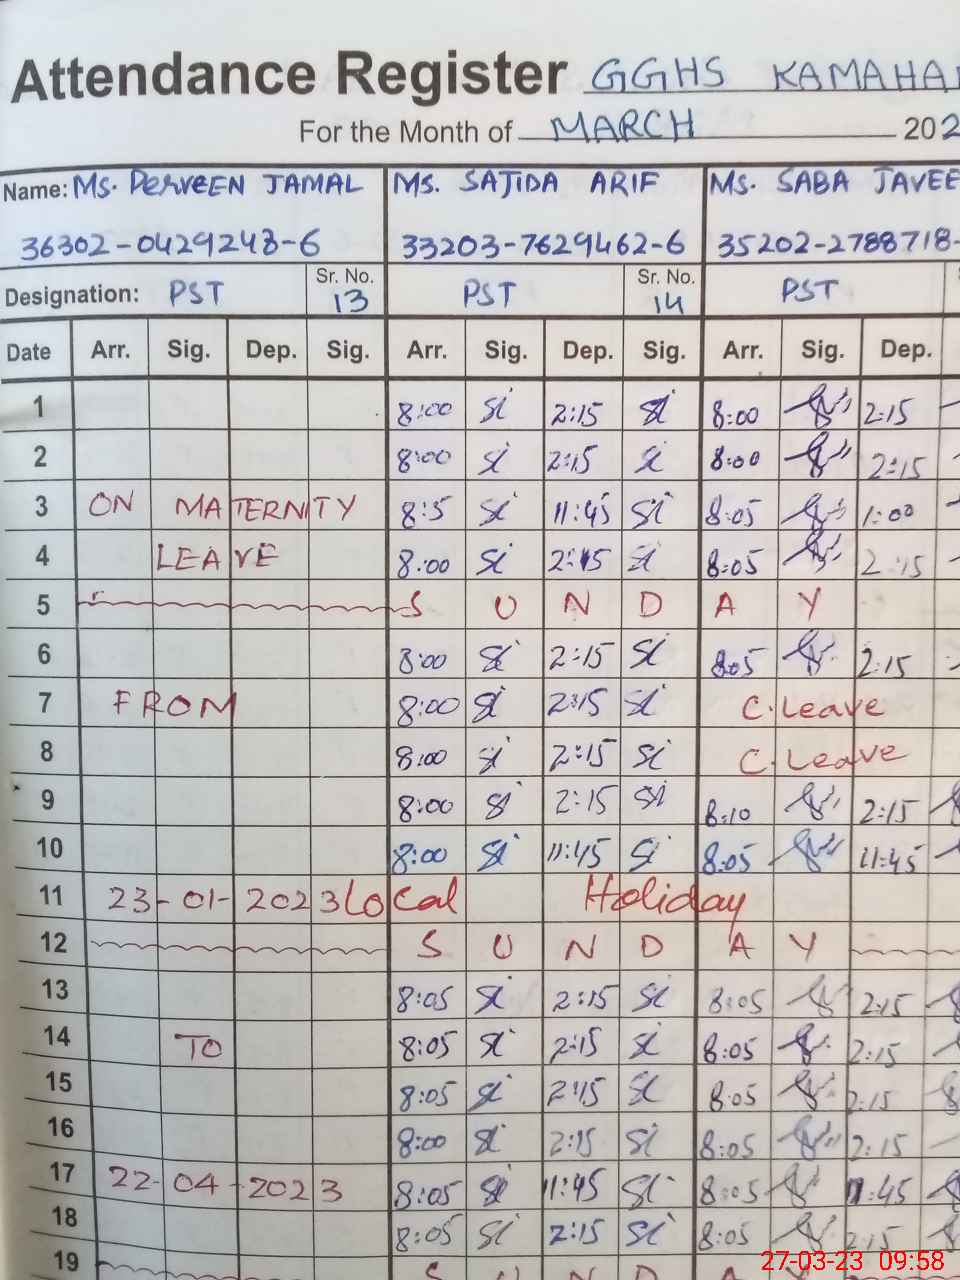 Attendance Register GGHS KAMAHA
For the Month of MARCH 202
Name: Ms. PERVEEN JAMAL Ms. SAJIDA ARIF Ms. SABA JAVEE
36302-0429248-6 33203-7629462-6 35202-2788718-
Designation: PST Sr. No. 13 PST Sr. No. 14 PST
Date Arr. Sig. Dep. Sig. Arr. Sig. Dep. Sig. Arr. Sig. Dep.
1 8:00 Si 2:15 Si 8:00 2:15
2 8:00 Si 2:15 Si 8:00 2:15
3 ON MATERNITY 8:5 Si 11:45 Si 8:05 1:00
4 LEAVE 8:00 Si 2:15 Si 8:05 2:15
5 S U N D A Y
6 8:00 Si 2:15 Si 8:05 2:15
7 FROM 8:00 Si 2:15 Si C.Leave
8 8:00 Si 2:15 Si C.Leave
9 8:00 Si 2:15 Si 8:10 2:15
10 8:00 Si 11:45 Si 8:05 11:45
11 23-01-2023 Local Holiday
12 S U N D A Y
13 8:05 Si 2:15 Si 8:05 2:15
14 TO 8:05 Si 2:15 Si 8:05 2:15
15 8:05 Si 2:15 Si 8:05 2:15
16 8:00 Si 2:15 Si 8:05 2:15
17 22-04-2023 8:05 Si 11:45 Si 8:05 11:45
18 8:05 Si 2:15 Si 8:05 2:15
19 S U N D A Y
27-03-23 09:58